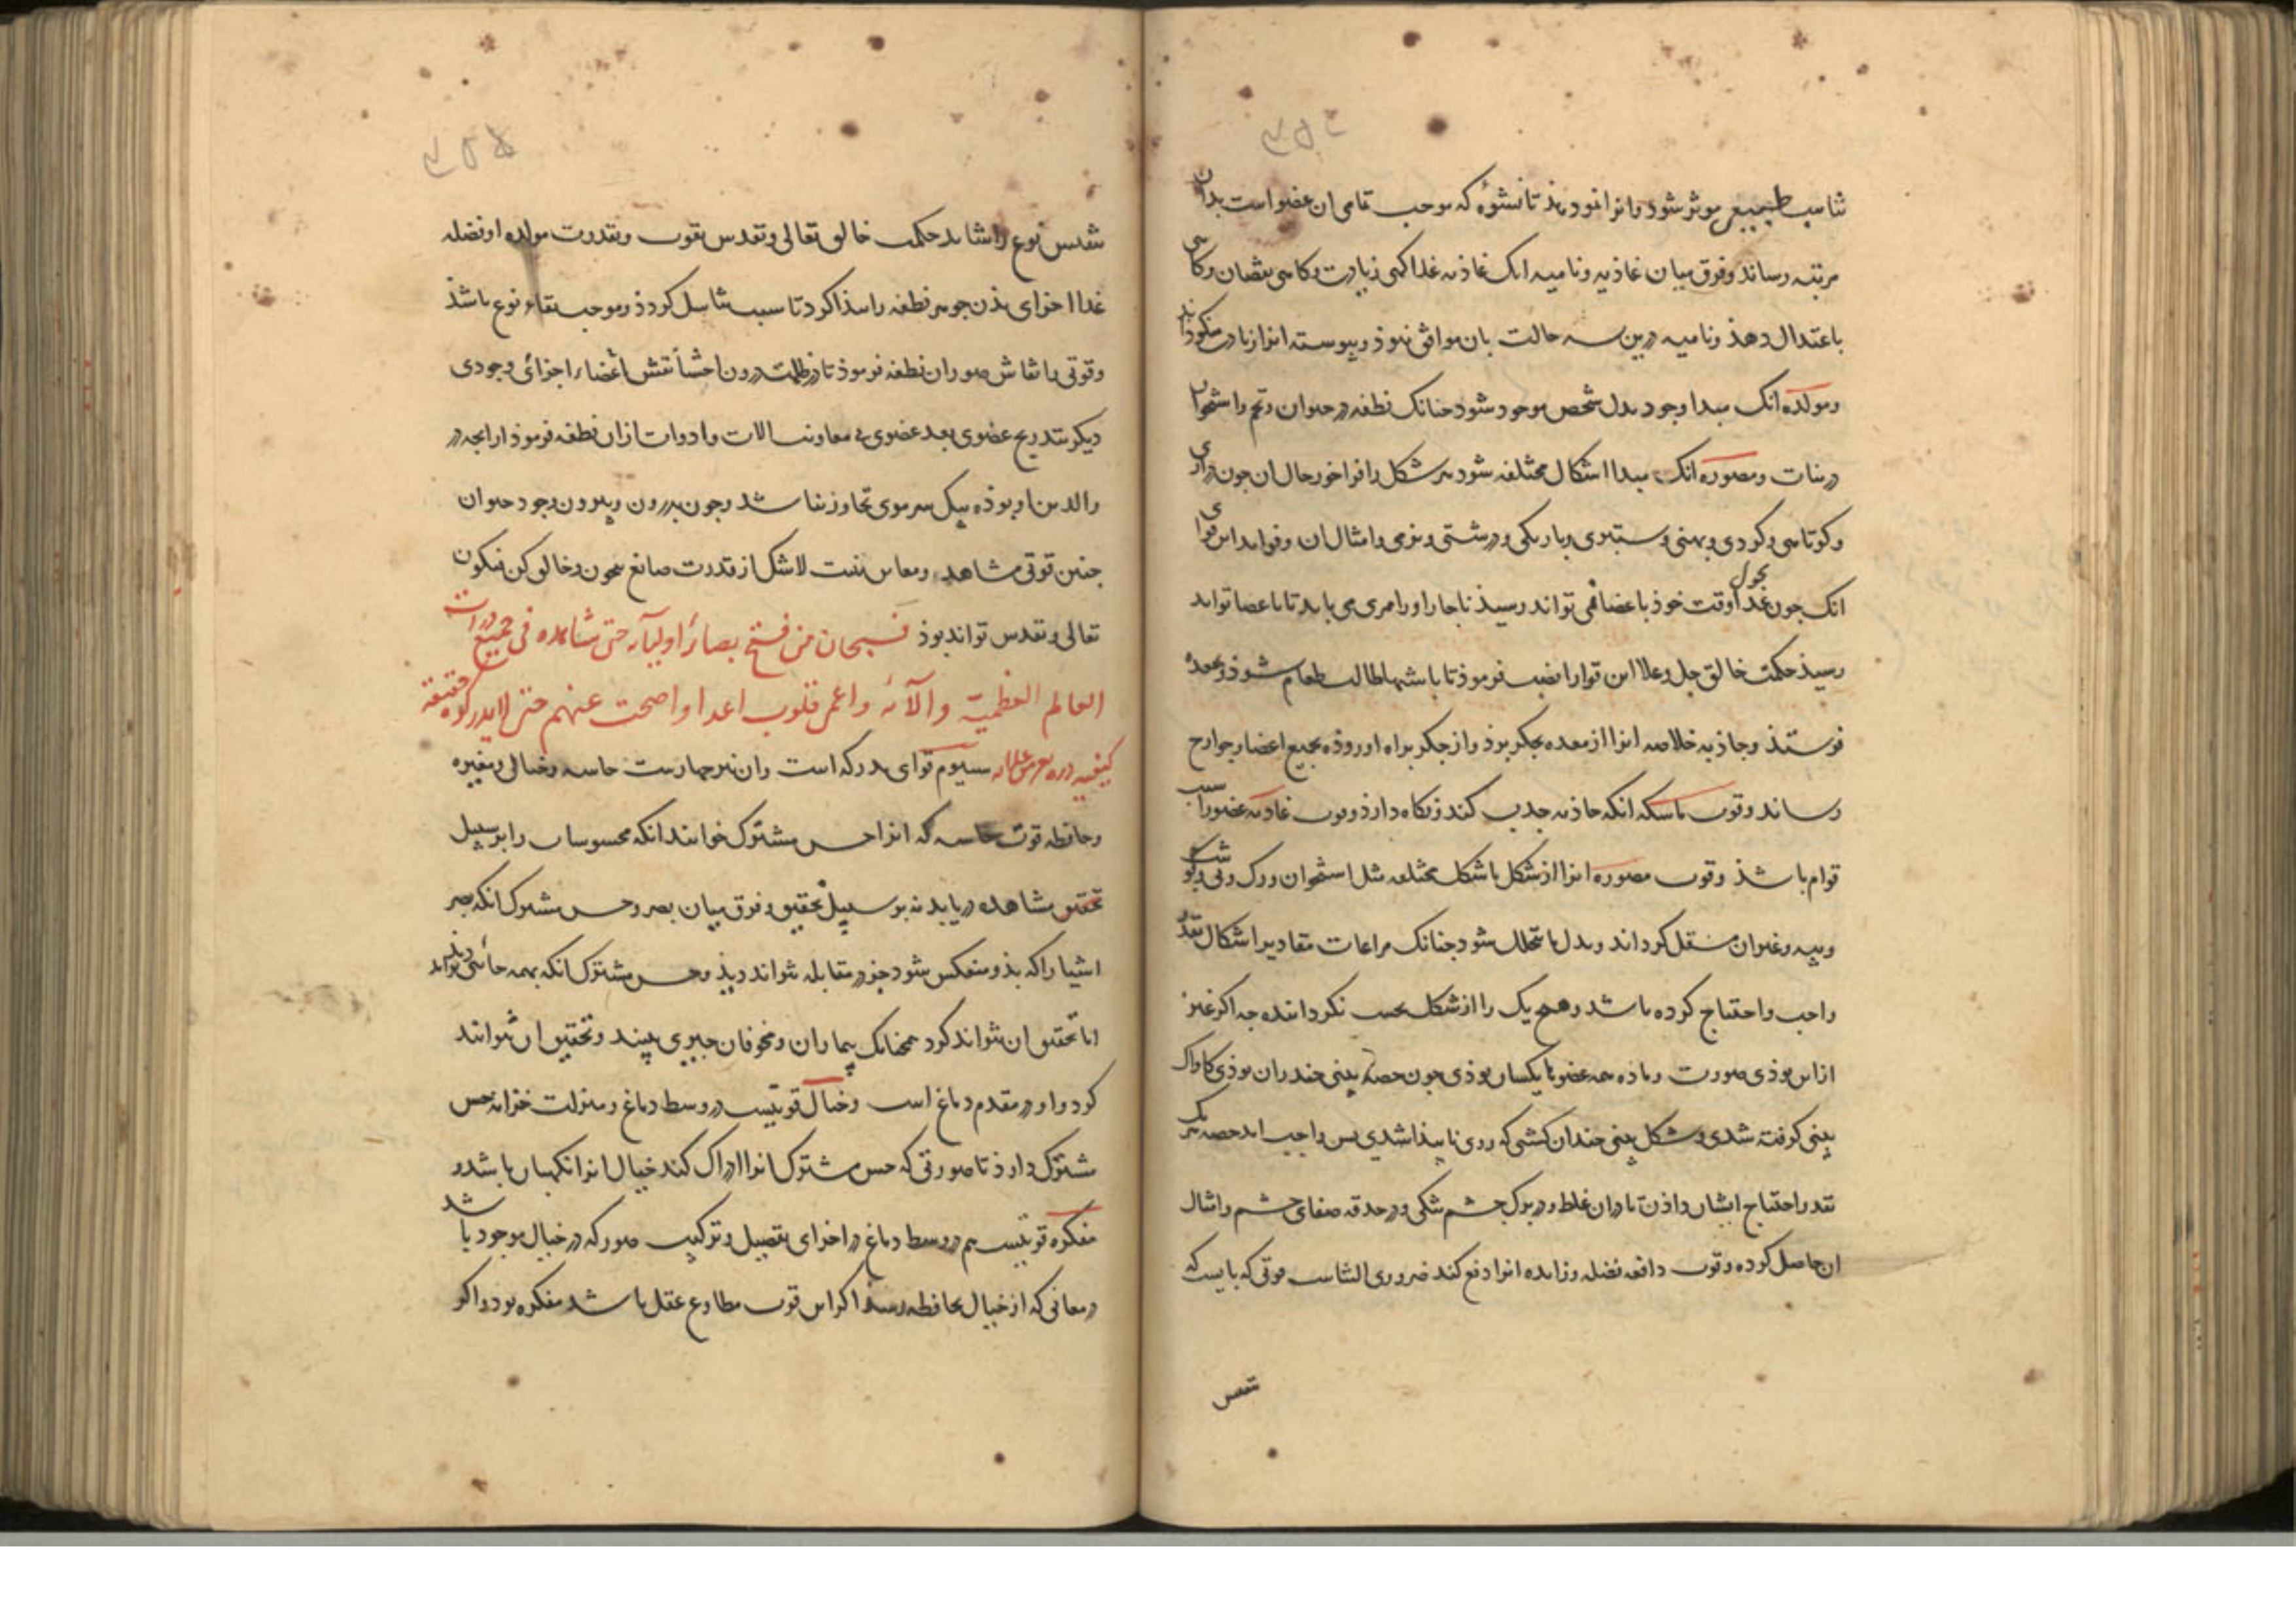 تناسب طبیعی موثر شود وانرا نمو دهد تا نشوء که موجب تمامی ان عضو است بدان
مرتبه رساند وفرق میان غاذیه ونامیه انک غاذیه غذا کهی زیادت وکاهی نقصان وکاهی
باعتدال دهد ونامیه درین سه حالت بان موافق نبوذ وپیوسته انرا زیادت
ومولده انک مبدا وجود بدل شخص موجود شود جنانک نطفه در حیوان وتخم واستخوان
در نبات ومصوره انک مبدا اشکال مختلفه شود هر شکل را فراخور حال ان جون درازی
وکوتاهی وکردی وپهنی وستبری وباریکی ودرشتی ونرمی وامثال ان وفواید این قوای
انک جون غذا بحول وقت خوذ باعضا نمی تواند رسیذ ناجار اورا مری می باید تا باعضا تواند
رسیذ حکمت خالق جل وعلا این قوارا نصب فرموذ تا باشتها طالب طعام شوذ وبمعده
فرستد وجاذبه خلاصه انرا از معده بجکر برذ واز جکر براه اورده بجمیع اعضا وجوارح
رساند وقوت ماسکه انکه جاذبه جذب کند نکاه دارذ وقوت غاذیه عضورا سبب
قوام باشذ وقوت مصوره انرا از شکل باشکال مختلفه مثل استخوان ورک وپی وکوشت
وپیه وغیران منتقل کرداند وبدل ما یتحلل شود جنانک مراعات مقادیر اشکال بقدر
واجب واحتیاج کرده باشد وهیج یک را از شکل بحسب نکردانده جه اکر غیر
ازاین بوذی صورت وماده همه عضوها یکسان بوذی جون حصه بینی جند ران بوذی کاواک
بینی کرفته شدی وشکل بینی جندان کشتی که روی ناپیذا شدی پس واجب امد حصه هر یک
بقدر احتیاج ایشان داذن تا دران غلط ودر برک جشم تنکی ودر حدقه صفای جشم وامثال
ان حاصل کرده وقوت دافعه فضله وزایده انرا دفع کند ضروری الشاست قوتی که بایست که
شخص
شخص نوع را شاید حکمت خالق تعالی وتقدس بقوت وبقدرت مولده او فضله
غذا اجزای بدن جوهر نطفه را سذا کرد تا سبب تناسل کردذ وموجب بقاء نوع باشذ
وقوتی با نقاش صور ان نطفه فرموذ تا در ظلمت درون احشا نقش اعضا واجزای وجودی
دیکر بتدریج عضوی بعد عضوی بی معاونت الات وادوات ازان نطفه فرموذ ارایجه در
والدین او بوذه بیک سر موی تجاوز نباشد وجون بدرون وبیرون وجود حیوان
جنین قوتی مشاهد ومعاین نیست لاشک از قدرت صانع بیجون وخالق کن فیکون
تعالی وتقدس تواند بوذ فسبحان من فتح بصائر اولیائه حتی شاهده فی جمیع ذرات
العالم العظمیة والآئه واعمی قلوب اعدا واضحت عنهم حتی لا یدرکوه حقیقته
سیوم قوای مدرکه است وان نیز جهارست حاسه وخیال ومفکره
وحافظه قوت حاسه که انرا حس مشترک خوانند انکه محسوسات را بر سبیل
تحقیق مشاهده دریابد نه بر سبیل تحقیق وفرق میان بصر وحس مشترک انکه بصر
اشیا را که بذو منعکس شود جز در مقابله نتواند دیذ وحس مشترک انکه بهمه جانبی تواند دید
اما تحقیق ان نتواند کرد همجنانک بیماران ومخوفان جیزی بینند وتحقیق ان نتوانند
کرد واو در مقدم دماغ است وخیال قوتیست در وسط دماغ وبمنزلت خزانه حس
مشترک دارذ تا صورتی که حس مشترک انرا ادراک کند خیال انرا نکهبان باشد و
مفکره قوتیست هم در وسط دماغ در اجزای تفصیل وترکیب صور که در خیال موجود باشد
در معانی که از خیال بحافظه رسد اکر این قوت مطاوع عقل باشد مفکره بود واکر